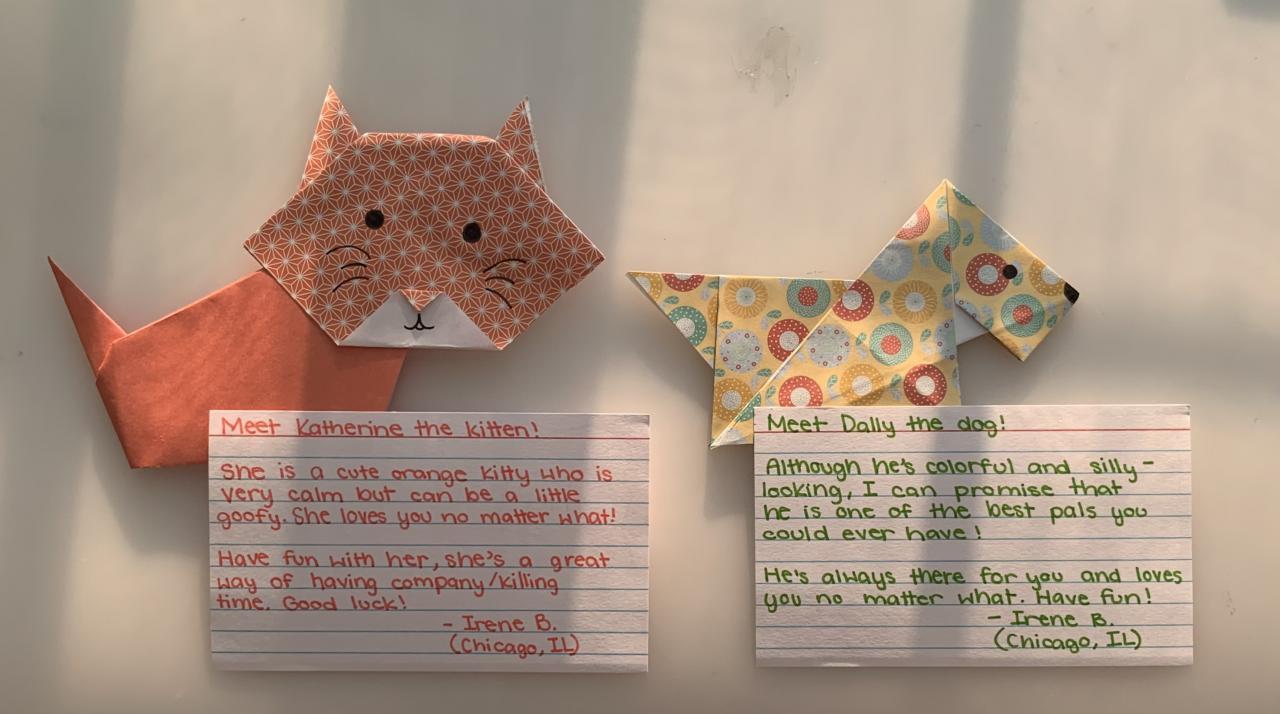 Meet Katherine the kitten!
She is a cute orange kitty who is
very calm but can be a little
goofy. She loves you no matter what!
Have fun with her, she's a great
way of having company/killing
time. Good luck!
- Irene B.
(Chicago, IL)
Meet Dally the dog!
Although he's colorful and silly-
looking, I can promise that
he is one of the best pals you
could ever have!
He's always there for you and loves
you no matter what. Have fun!
- Irene B.
(Chicago, IL)